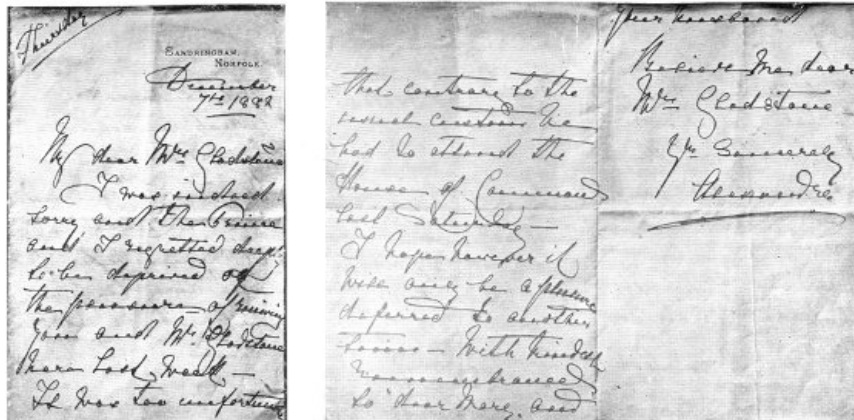 Thursday
SANDRINGHAM,
NORFOLK.
December
7th 1882
My dear Mrs Gladstone
I was indeed
sorry and the Prince
and I regretted deeply
to be deprived of
the pleasure of seeing
you and Mr Gladstone
here last week –
It was too unfortunate
that contrary to the
usual custom he
had to attend the
House of Commons
last Saturday –
I hope however it
will only be a pleasure
deferred to another
time – With kindest
remembrances
to dear Mary, and
your husband
Believe me dear
Mrs Gladstone
Yrs Sincerely
Alexandra